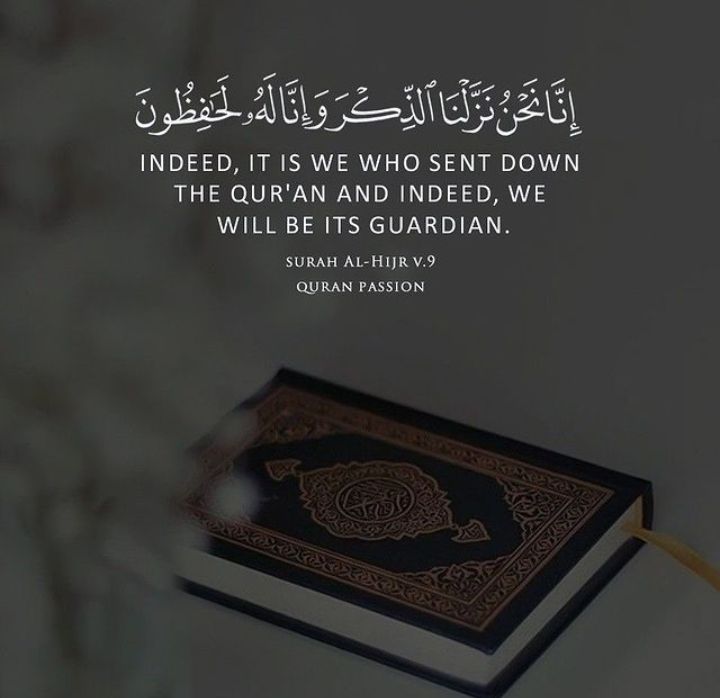 إِنَّا نَحْنُ نَزَّلْنَا ٱلذِّكْرَ وَإِنَّا لَهُۥ لَحَٰفِظُونَ
INDEED, IT IS WE WHO SENT DOWN
THE QUR'AN AND INDEED, WE
WILL BE ITS GUARDIAN.
SURAH AL-HIJR V.9
QURAN PASSION